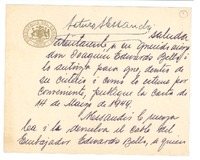 Arturo Alessandri
saluda
atentamente a su querido amigo
don Joaquín Edwards Bello, i
lo autoriza para que, dentro de
su criterio i como lo estime por
conveniente, publique la carta de
14 de Marzo de 1944.
Alessandri le ruega
lea i le devuelva el cable del
Embajador Edwards Bello, a quien